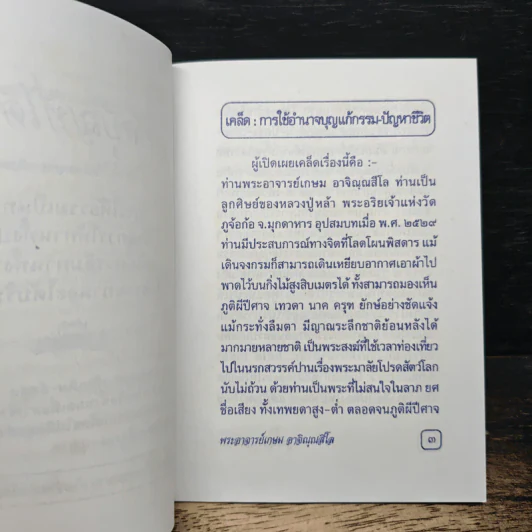 เคล็ด : การใช้อำนาจบุญแก้กรรม-ปัญหาชีวิต
ผู้เปิดเผยเคล็ดเรื่องนี้คือ :-
ท่านพระอาจารย์เกษม อาจิณฺณสีโล ท่านเป็น
ลูกศิษย์ของหลวงปู่หล้า พระอริยเจ้าแห่งวัด
ภูจ้อก้อ จ.มุกดาหาร อุปสมบทเมื่อ พ.ศ. ๒๕๒๙
ท่านมีประสบการณ์ทางจิตที่โลดโผนพิสดาร แม้
เดินจงกรมก็สามารถเดินเหยียบอากาศเอาผ้าไป
พาดไว้บนกิ่งไม้สูงสิบเมตรได้ ทั้งสามารถมองเห็น
ภูติผีปีศาจ เทวดา นาค ครุฑ ยักษ์อย่างชัดแจ้ง
แม้กระทั่งลืมตา มีญาณระลึกชาติย้อนหลังได้
มากมายหลายชาติ เป็นพระสงฆ์ที่ใช้เวลาท่องเที่ยว
ไปในนรกสวรรค์ปานเรื่องพระมาลัยโปรดสัตว์โลก
นับไม่ถ้วน ด้วยท่านเป็นพระที่ไม่สนใจในลาภ ยศ
ชื่อเสียง ทั้งเทพยดาสูง-ต่ำ ตลอดจนภูติผีปีศาจ
พระอาจารย์เกษม อาจิณฺณสีโล
๓